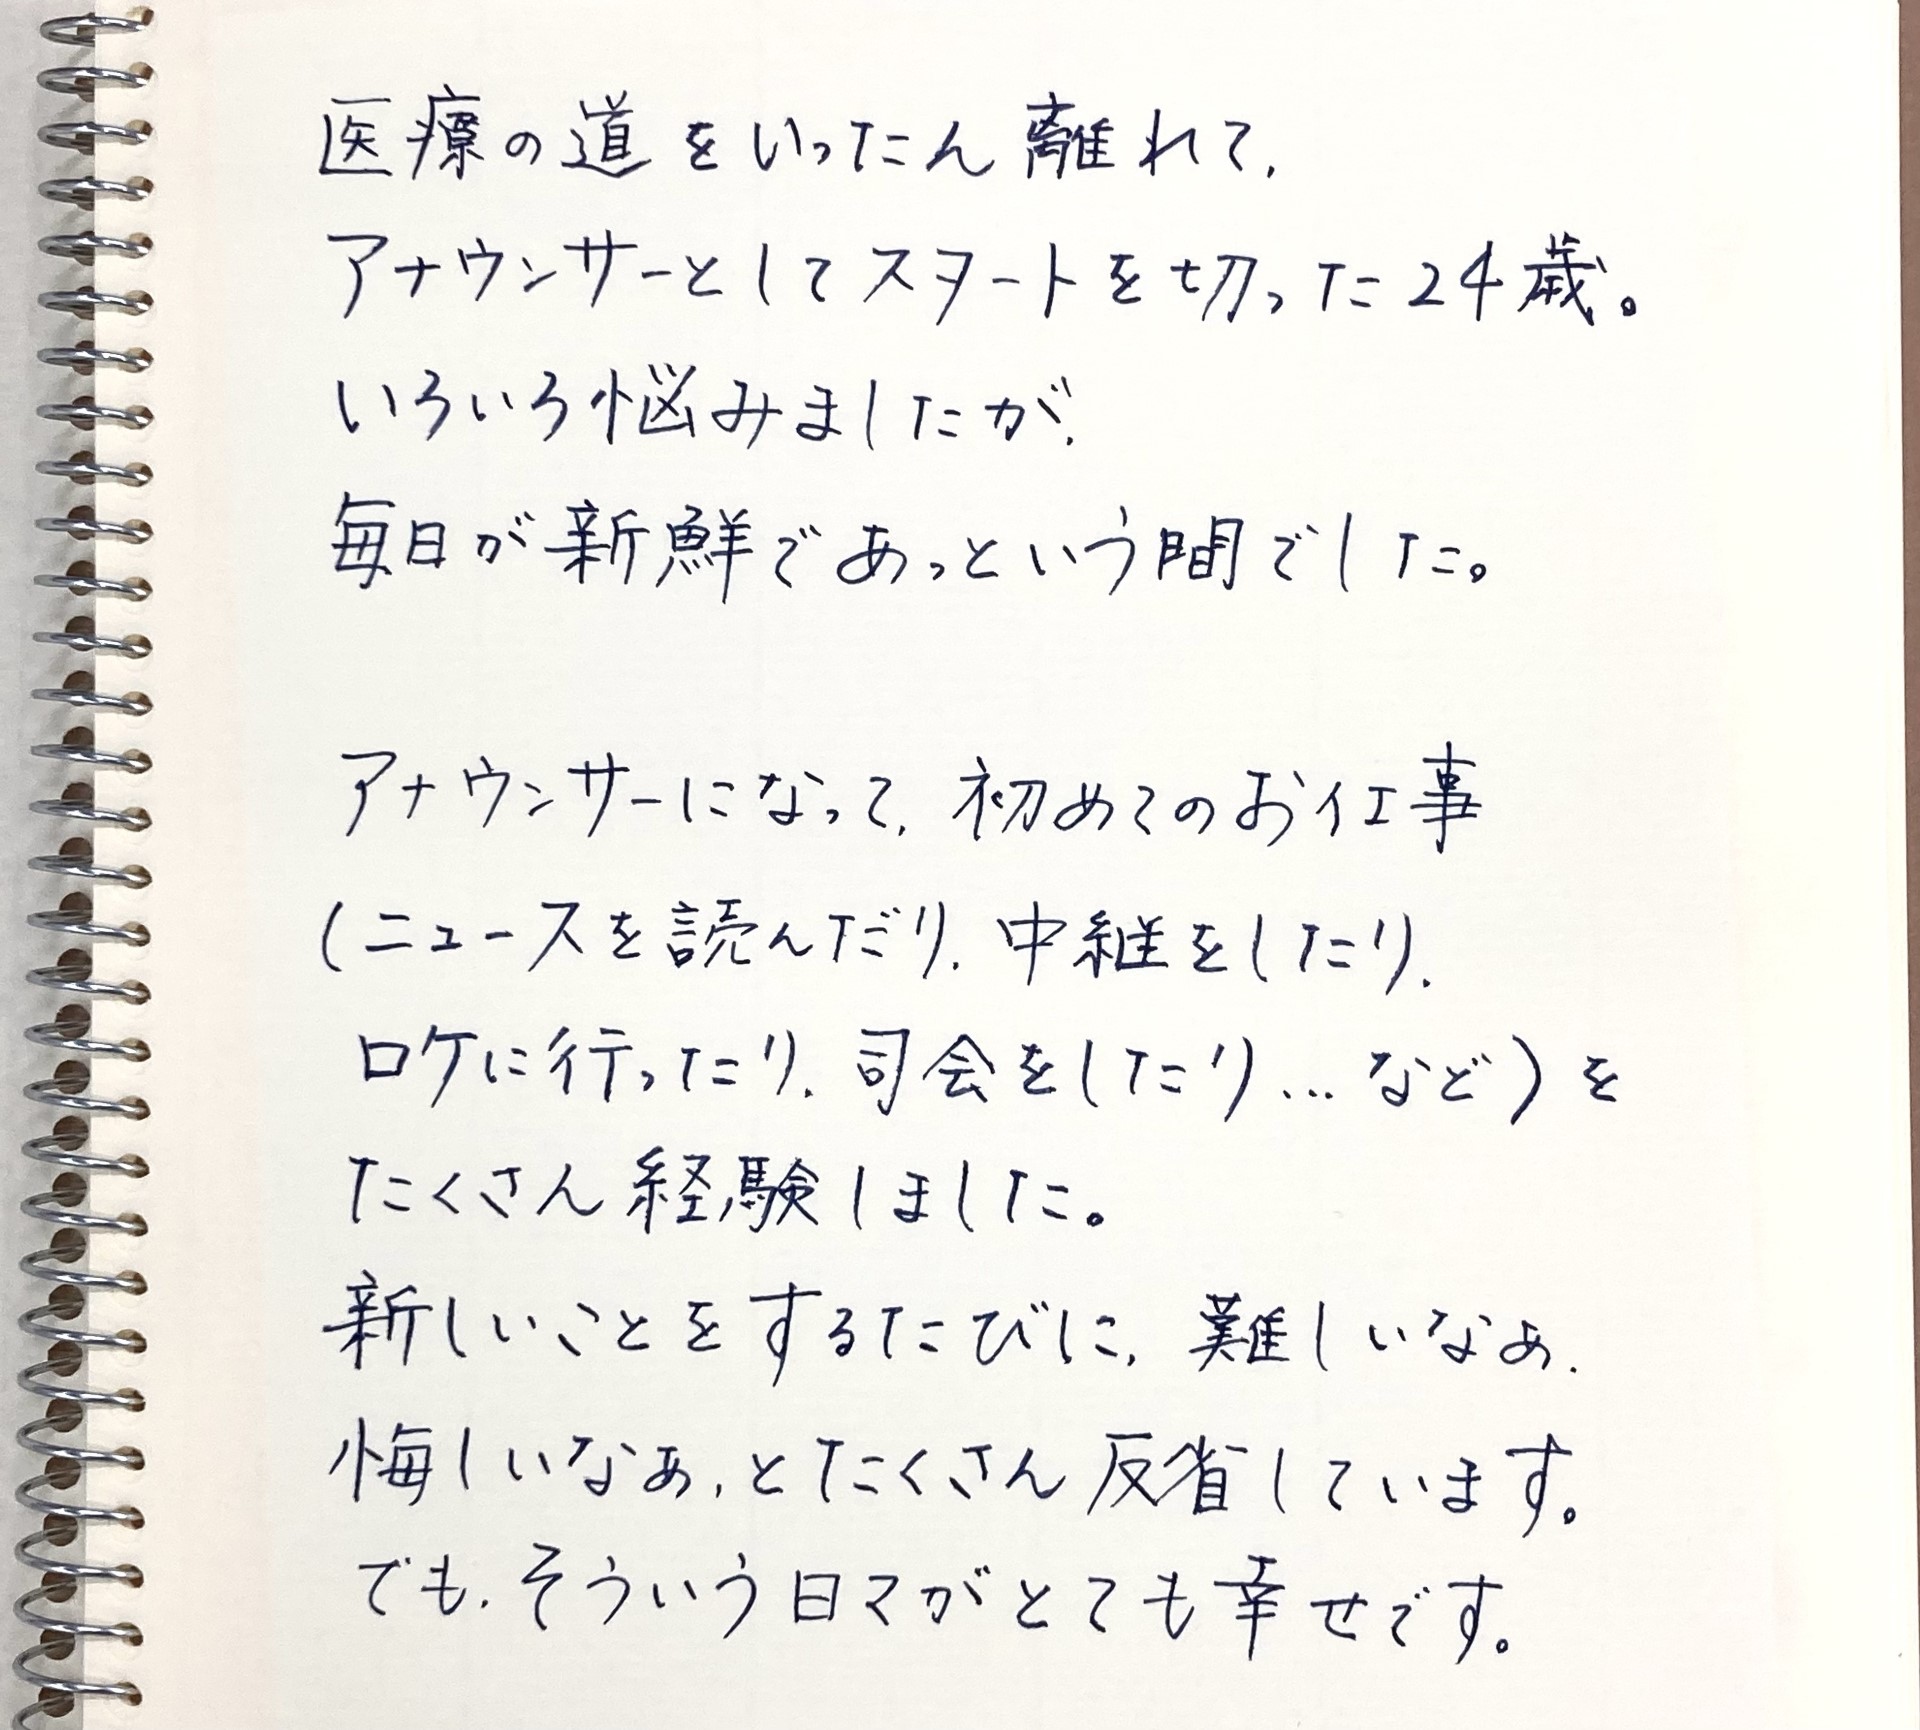 医療の道をいったん離れて、
アナウンサーとしてスタートを切った24歳。
いろいろ悩みましたが、
毎日が新鮮であっという間でした。
アナウンサーになって、初めてのお仕事
(ニュースを読んだり、中継をしたり、
ロケに行ったり、司会をしたり…など)を
たくさん経験しました。
新しいことをするたびに、難しいなぁ、
悔しいなぁ、とたくさん反省しています。
でも、そういう日々がとても幸せです。